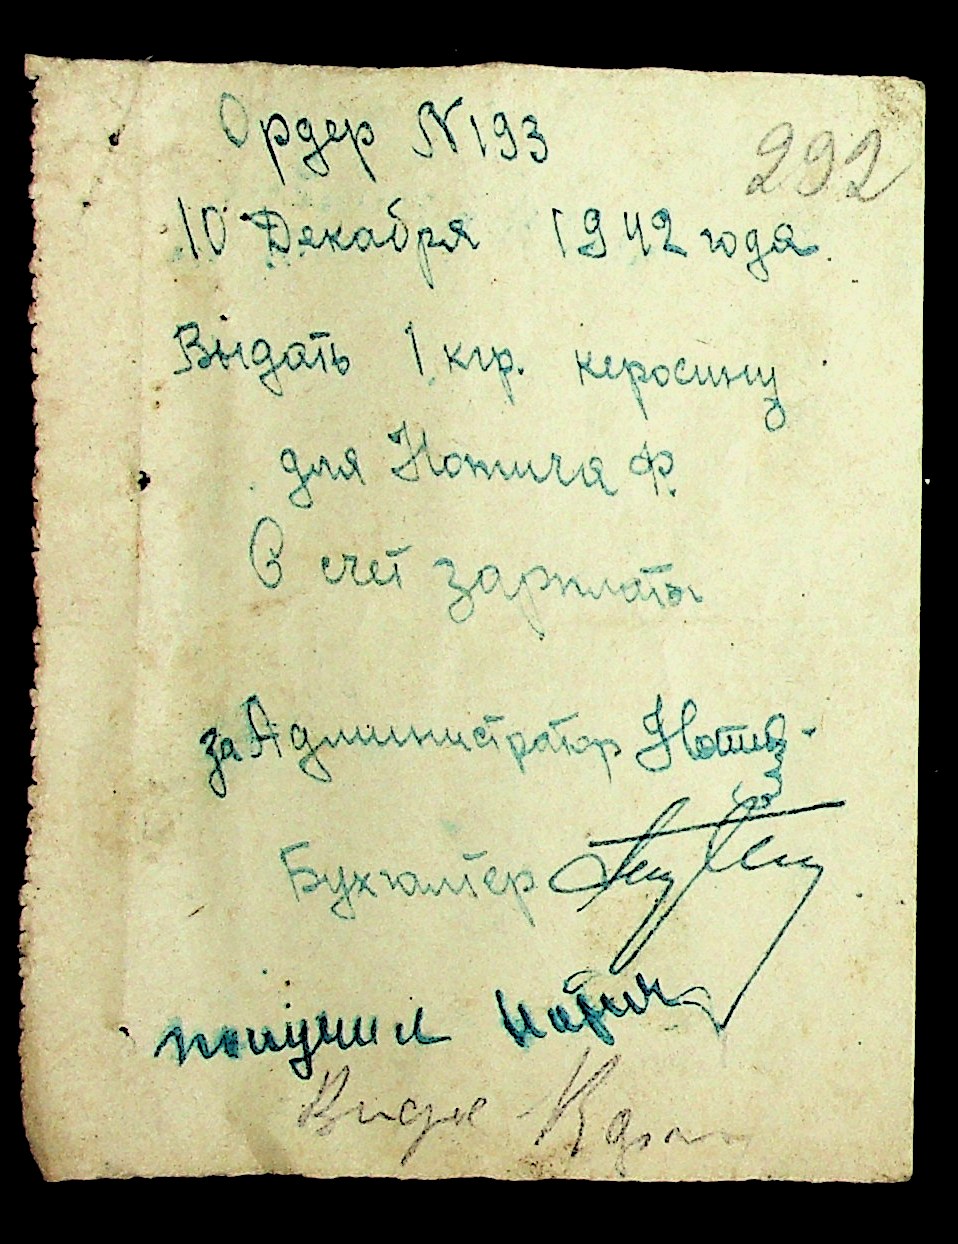 Ордер N 193
292
10 Декабря 1942 года.
Выдать 1 кгр. керосину
для Нотича Ф.
В счет зарплаты
за Администратор
Бухгалтер
получил Нотич